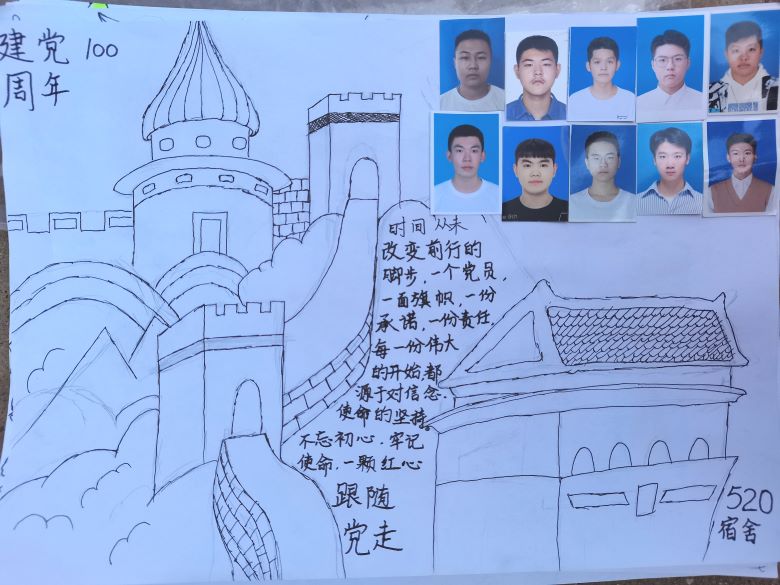 建党100
周年
时间从未
改变前行的
脚步,一个党员,
一面旗帜,一份
承诺,一份责任,
每一份伟大
的开始,都
源于对信念.
使命的坚持。
不忘初心.牢记
使命,一颗红心
跟随
党走
520
宿舍